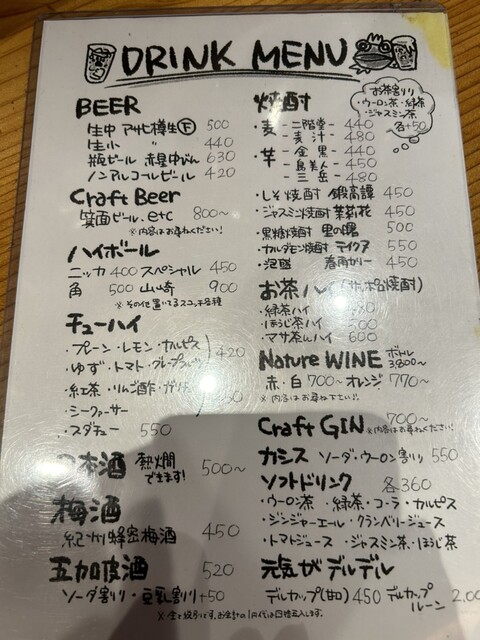 DRINK MENU
BEER
生中 アサヒ樽生Ⓕ 500
生小 〃 440
瓶ビール 赤星中びん 630
ノンアルコールビール 420
Craft Beer
箕面ビール.etc 800〜
※内容はお尋ねください!
ハイボール
ニッカ 400 スペシャル 450
角 500 山崎 900
※その他置いてるスコッチ各種
チューハイ
・プレーン・レモン・カルピス
・ゆず・トマト・グレープフルーツ 420
・紅茶・りんご酢・ガリ
・シークァーサー
・スダチュー 550
本酒 熱燗できます! 500〜
梅酒
紀州蜂蜜梅酒 450
五加皮酒 520
ソーダ割り・豆乳割り+50
焼酎
お茶割り
・ウーロン茶・緑茶
・ジャスミン茶
各+50
・麦 - 二階堂 - 440
- 麦汁 - 480
・芋 - 金黒 - 440
- 島美人 - 450
- 三岳 - 480
・しそ焼酎 鍛高譚 450
・ジャスミン焼酎 茉莉花 450
・黒糖焼酎 里の曙 500
・カルダモン焼酎 テイクア 550
・泡盛 春雨カリー 450
お茶ハイ(サッポロ焼酎)
・緑茶ハイ
・ほうじ茶ハイ 500
・マサ茶ハイ 600
Nature WINE ボトル 3,800〜
赤・白 700〜 オレンジ 770〜
※内容はお尋ね下さい!
Craft GIN 700〜
※内容はお尋ねください!
カシス ソーダ・ウーロン割り 550
ソフトドリンク 各360
・ウーロン茶 ・緑茶・コーラ・カルピス
・ジンジャーエール・クランベリージュース
・トマトジュース ・ジャスミン茶・ほうじ茶
元気がデルデル
デルカップ(甘口) 450 デルカップルーン 2,00